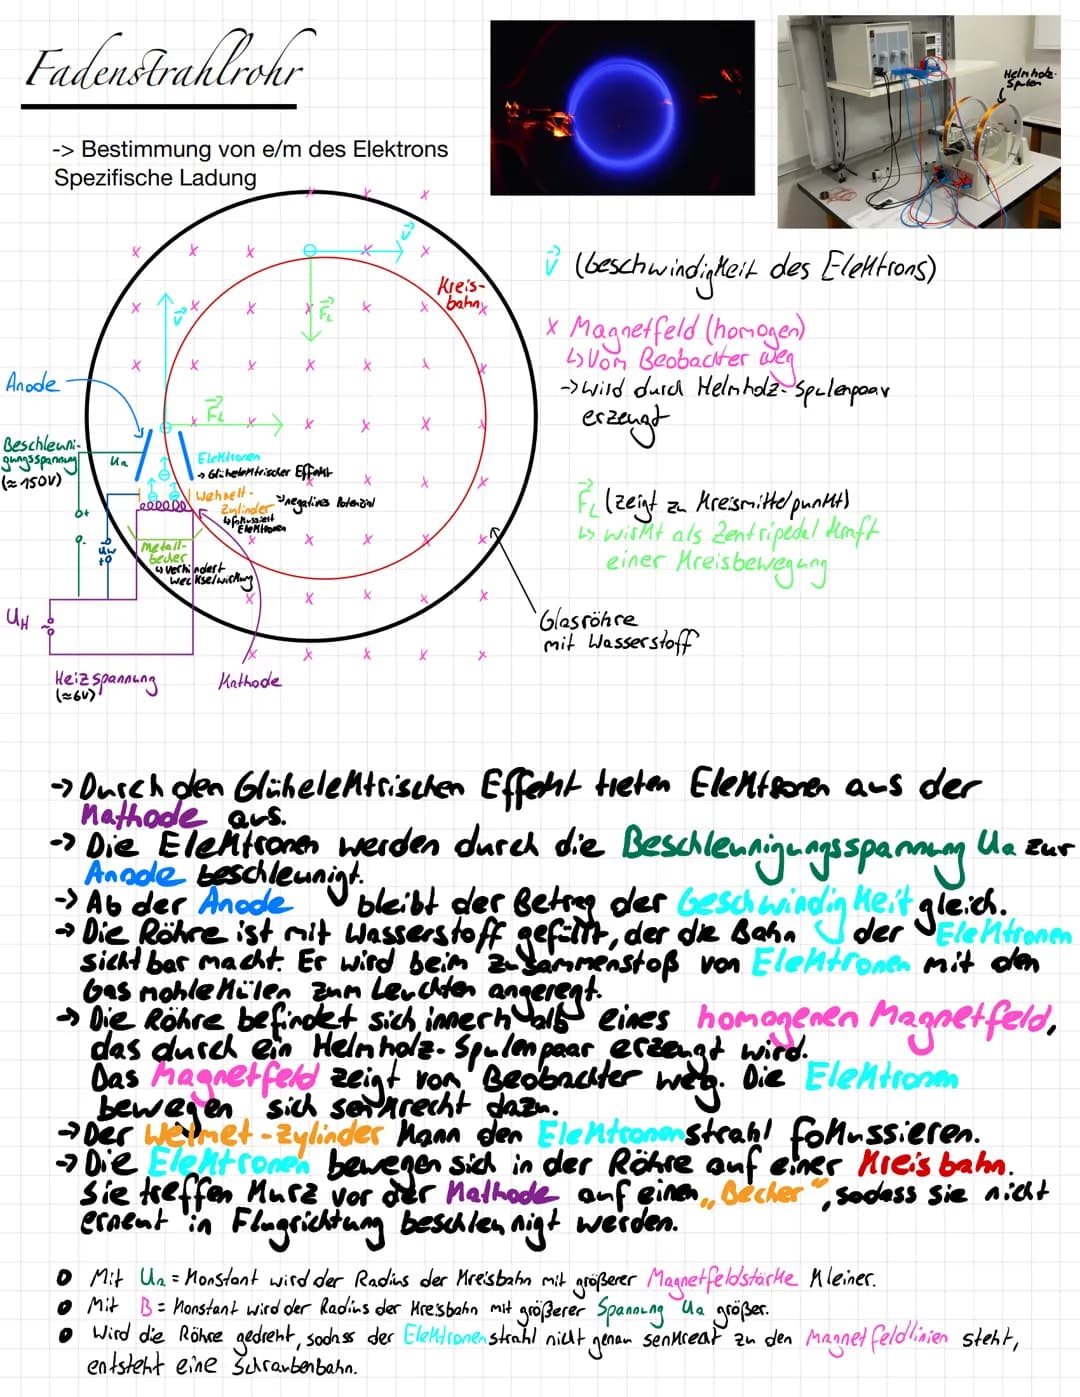 Fadenstrahlrohr
Helmholz-
Spulen
-> Bestimmung von e/m des Elektrons
Spezifische Ladung
v
Kreis-
bahn
v
F_L
Anode
F_L
Beschleuni-
gungsspannung
(≈150V)
Ua
Elektronen
-> Glühelektrischer Effekt
Wehnelt-
Zylinder
-> negatives Potenzial
↳ fokussiert
Elektronen
Metall-
becher
↳ verhindert
Wechselwirkung
Uw
UH
Heizspannung
(≈6V)
Kathode
v (Geschwindigkeit des Elektrons)
x Magnetfeld (homogen)
↳ Vom Beobachter weg
-> wird durch Helmholz-Spulenpaar
erzeugt
F_L (zeigt zu Kreismittelpunkt)
↳ wirkt als Zentripedal Kraft
einer Kreisbewegung
Glasröhre
mit Wasserstoff
-> Durch den Glühelektrischen Effekt treten Elektronen aus der
Kathode aus.
-> Die Elektronen werden durch die Beschleunigungsspannung Ua zur
Anode beschleunigt.
-> Ab der Anode bleibt der Betrag der Geschwindigkeit gleich.
-> Die Röhre ist mit Wasserstoff gefüllt, der die Bahn der Elektronen
sichtbar macht. Er wird beim Zusammenstoß von Elektronen mit den
Gasmohlekülen zum Leuchten angeregt.
-> Die Röhre befindet sich innerhalb eines homogenen Magnetfeld,
das durch ein Helmholz-Spulenpaar erzeugt wird.
Das Magnetfeld zeigt von Beobachter weg. Die Elektronen
bewegen sich senkrecht dazu.
-> Der Welmet-Zylinder kann den Elektronenstrahl fokussieren.
-> Die Elektronen bewegen sich in der Röhre auf einer Kreisbahn.
Sie treffen kurz vor der Kathode auf einen „Becher“, sodass sie nicht
erneut in Flugrichtung beschleunigt werden.
• Mit Ua = Konstant wird der Radius der Kreisbahn mit größerer Magnetfeldstärke kleiner.
• Mit B = Konstant wird der Radius der Kreisbahn mit größerer Spannung Ua größer.
• Wird die Röhre gedreht, sodass der Elektronenstrahl nicht genau senkrecht zu den Magnetfeldlinien steht,
entsteht eine Schraubenbahn.